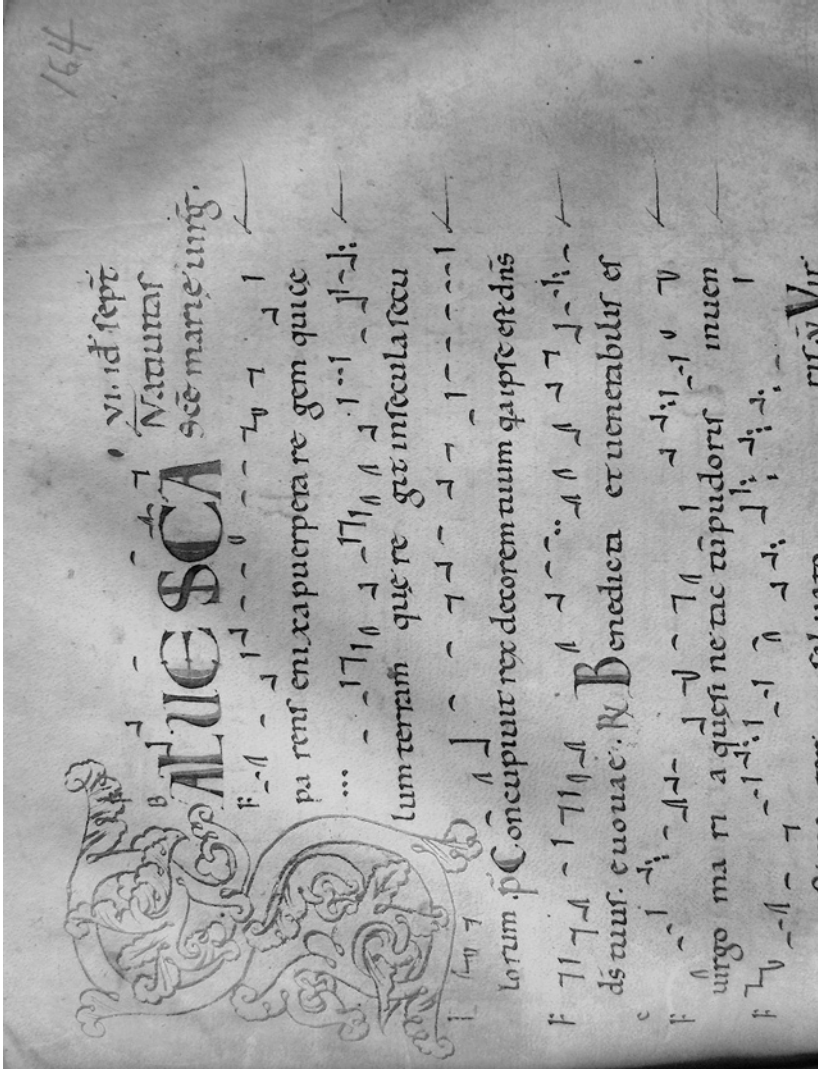 164
VI. id. sept̄
Natiuitas
Scē marię uirg̅.
SALUE SCA
pa rens enixa puerpera re gem qui cę
lum terram quę re git in secula secu
lorum. p̄ Concupiuit rex decorem tuum q̄a ipse est dn̄s
ds̄ tuus. euouae. R̷ Benedicta et uenerabilis es
uirgo ma ri a quę si ne tac tu pudoris inuen